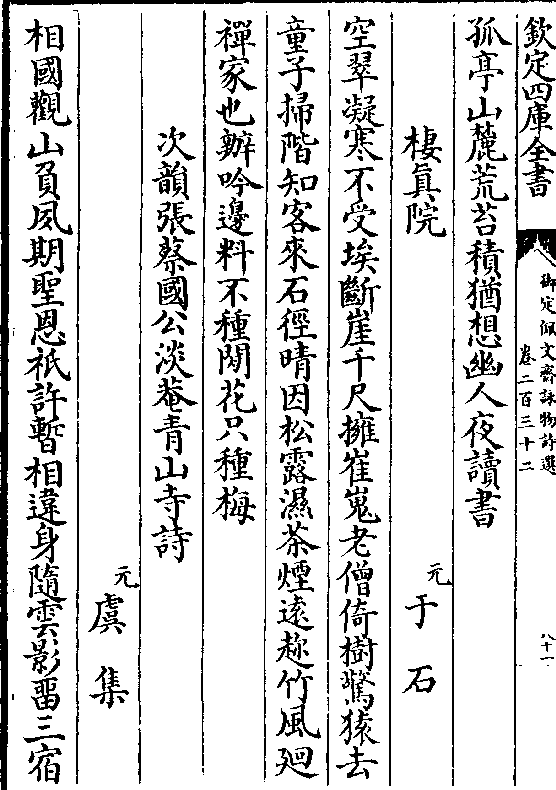 欽定四庫全書
御定佩文齋詠物詩選
卷二百三十二
八十一
孤亭山麓荒苔積猶想幽人夜讀書
棲真院
元于石
空翠凝寒不受埃斷崖千尺擁崔嵬老僧倚樹驚猿去
童子掃階知客來石徑晴因松露濕茶煙遠趂竹風廻
禪家也辦吟邊料不種閒花只種梅
次韻張蔡國公淡菴青山寺詩
元虞集
相國觀山負夙期聖恩祇許暫相違身隨雲影畱三宿